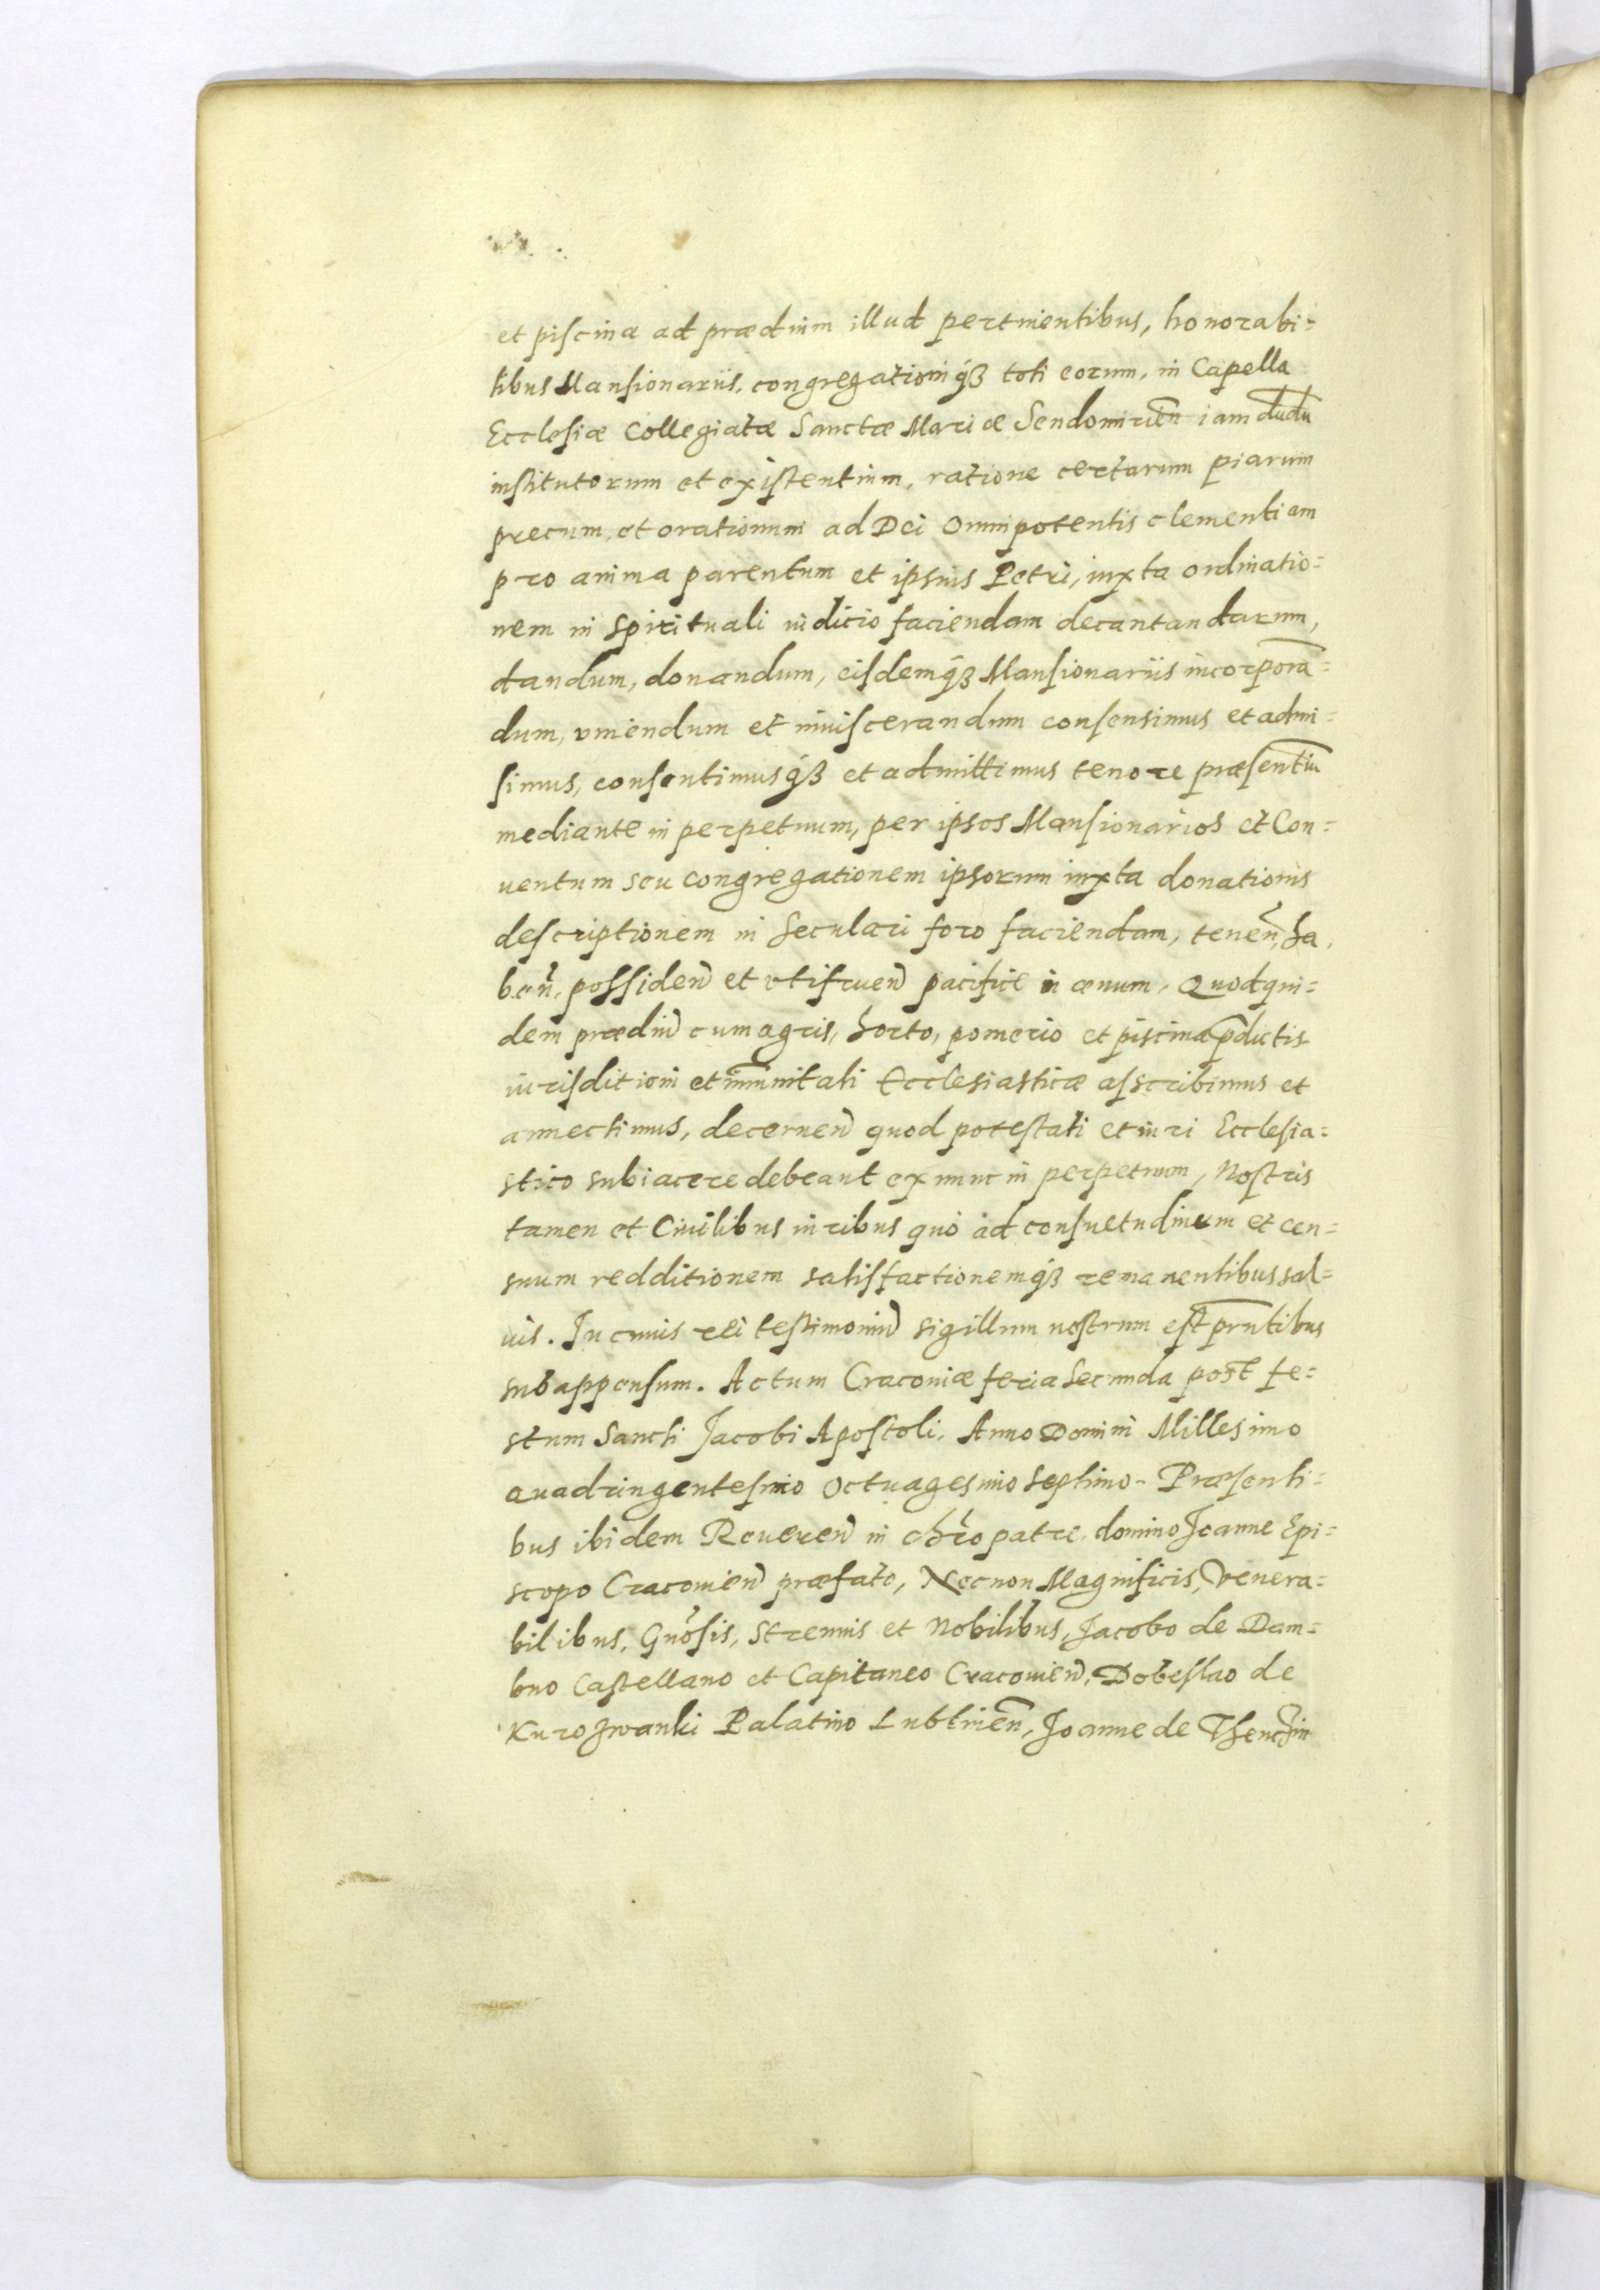 et piscina ad prædium illud pertinentibus, honorabi=
libus Mansionariis, congregationiq́ꝫ toti eorum, in Capella
Ecclesiæ Collegiatæ Sanctæ Mariæ Sendomirien̄ iam dudū
institutorum et existentium, ratione certarum piarum
precum, et orationum ad Dei Omnipotentis clementiam
pro anima parentum et ipsius Petri, iuxta ordinatio=
nem in spirituali iudicio faciendam decantandarum,
dandum, donandum, eisdemq́ꝫ Mansionariis incorporā=
dum, vniendum et inuiscerandum consensimus et admi=
simus, consentimusq́ꝫ et admittimus tenore præsentiū
mediante in perpetuum, per ipsos Mansionarios et Con=
uentum seu congregationem ipsorum iuxta donationis
descriptionem in seculari foro faciendam, tenen̄, ha,
ben̄, possiden̄ et vtifruen̄ pacifice in æuum. Quodqui=
dem prædiū cum agris, horto, pomerio et piscina p̄dictis
iurisditioni et im̄unitati Ecclesiasticæ asscribimus et
annectimus, decernen̄ quod potestati et iuri Ecclesia=
stico subiacere debeant ex nunc in perpetuum, Nostris
tamen et Ciuilibus iuribus quò ad consuetudinem et cen=
suum redditionem satisfactionemq́ꝫ remanentibus sal=
uis. In cuius rei testimoniū sigillum nostrum est prn̄tibus
subappensum. Actum Cracouiæ feria secunda post fe=
stum Sancti Jacobi Apostoli, Anno Domini Millesimo
Quadringentesimo Octuagesimo septimo. Præsenti=
bus ibidem Reueren̄ in chr̄o patre, domino Joanne Epi=
scopo Cracouien̄ præfato, Necnon Magnificis, Venera=
bilibus, Gnōsis, Strenuis et Nobilibus, Jacobo de Dam=
bno Castellano et Capitaneo Cracouien̄, Dobeslao de
Kurozwanki Palatino Lublinen̄, Joanne de Thenczin